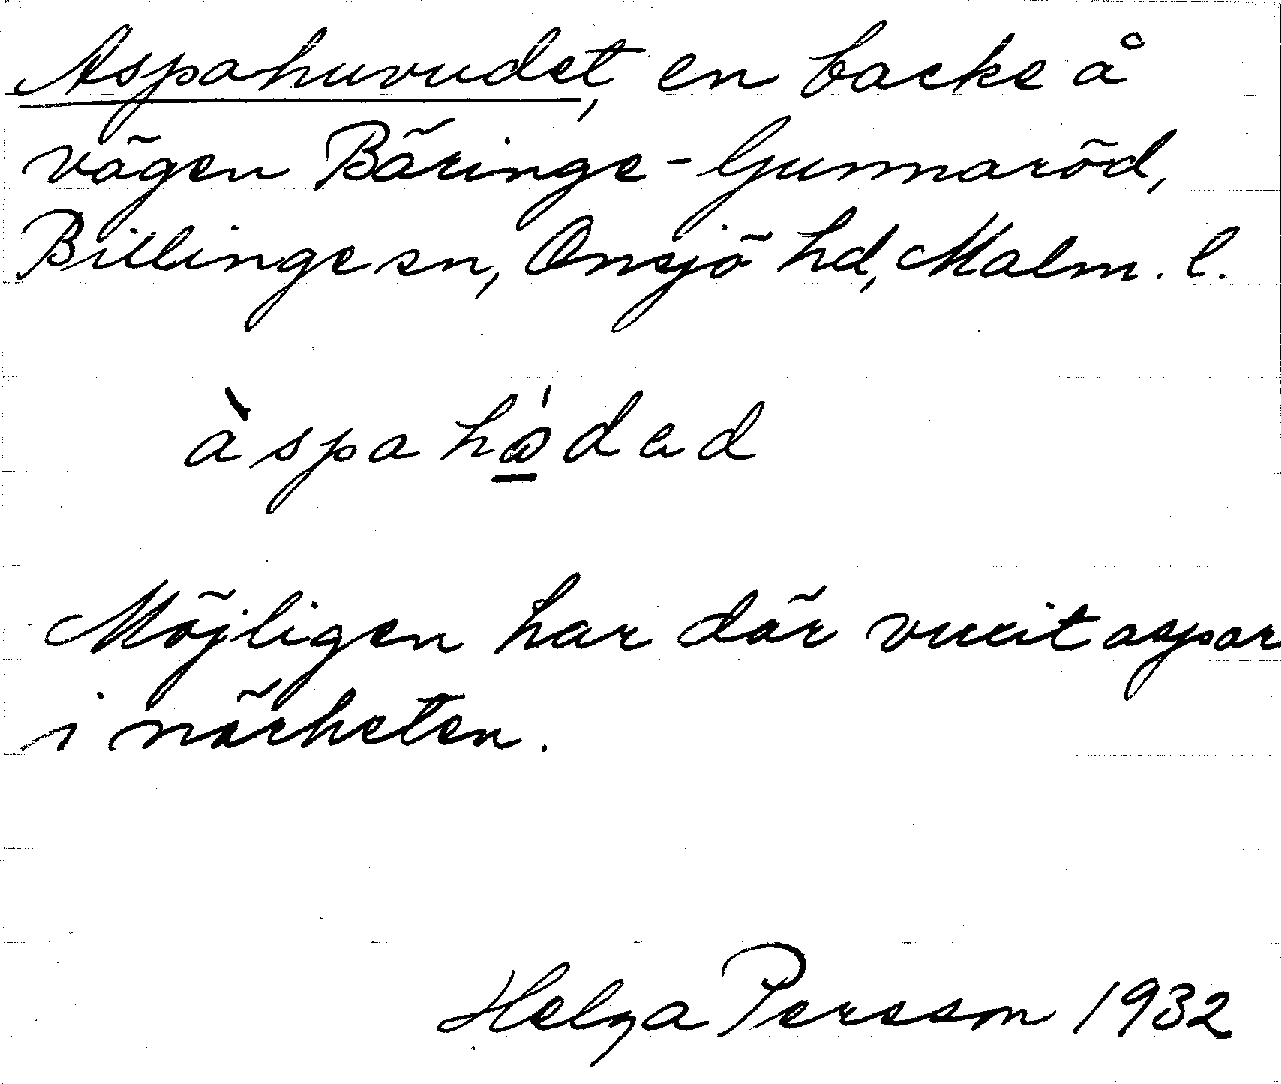 Aspahuvudet, en backe å
vägen Bäringe - Gunnaröd,
Billinge sn, Onsjö hd, Malm. l.
àspahώ̲dad
Möjligen har där vuxit aspar
i närheten.
Helga Persson 1932